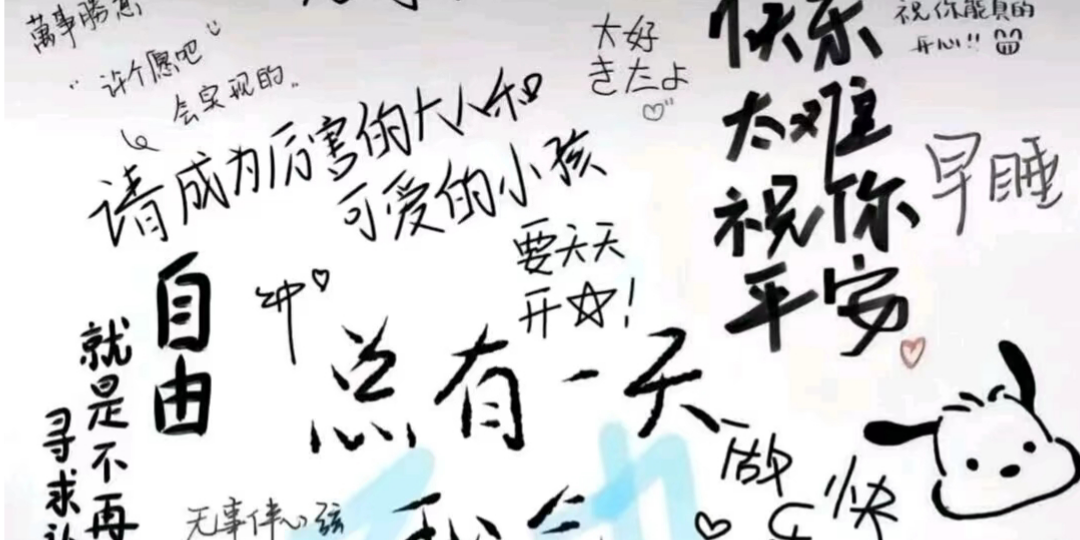 萬事勝意
许个愿吧
会实现的
请成为厉害的大人和
可爱的小孩
大好
きたよ
快乐
太难
祝你
平安
祝你能真的
开心!!
早睡
要天天
开☆!
自由
冲
就是不再
寻求
总有一天
无事伴心弦
做
快